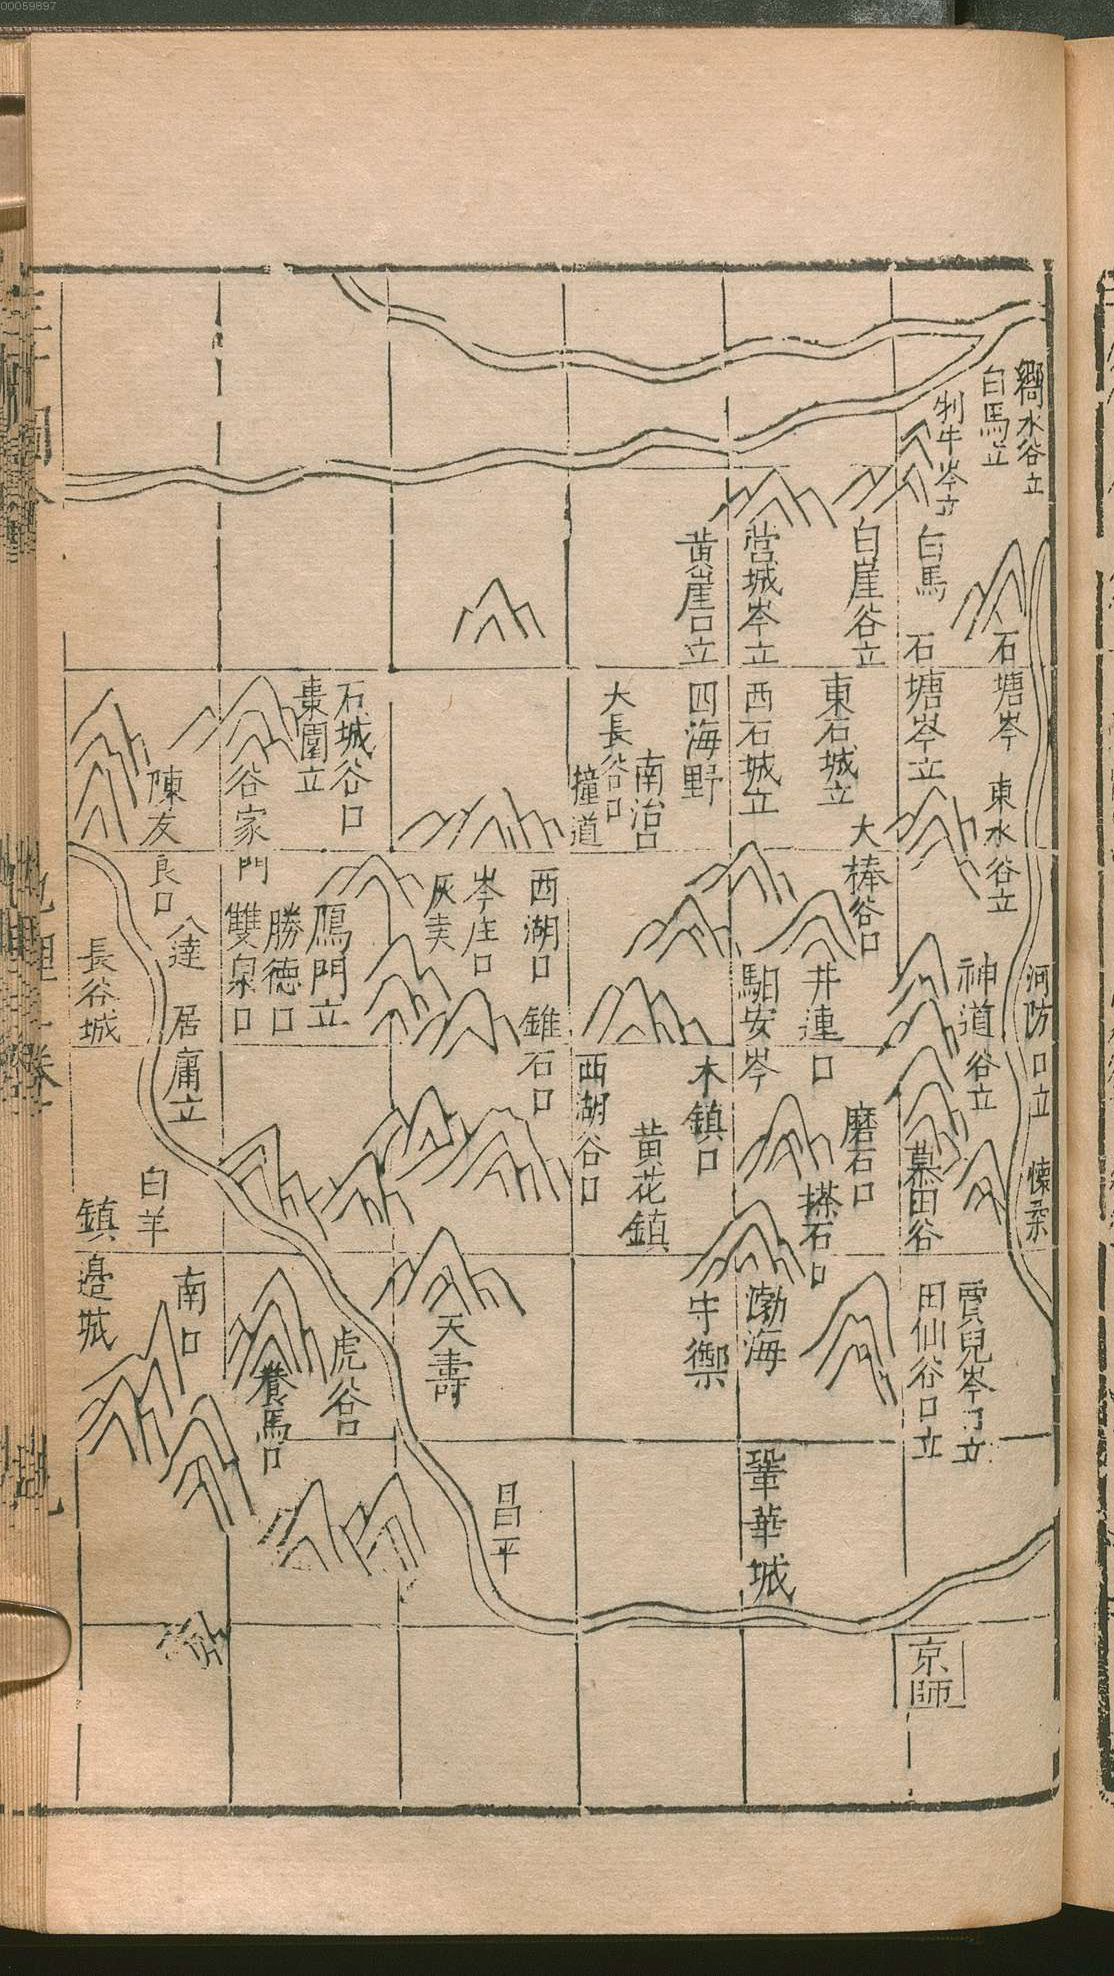 00059897
衙水谷立
白馬立
制牛岑立
白馬
石塘岑立
石塘岑
東水谷立
神道谷立
河防口立
慕田谷
賈兒岑口立
田仙谷口立
京師
白崖谷立
東石城立
大棒谷口
井連口
磨石口
搽石口
營城岑立
西石城立
駞安岑
渤海
鞏華城
黄崖口立
四海野
木鎮口
守禦
南治口
大長谷口
撞道
黄花鎮
西湖谷口
西湖口
錐石口
岑庄口
灰夫
天壽
昌平
石城谷口
棗園立
鴈門立
勝德口
雙泉口
谷家門
虎谷口
養馬口
陳友良口
八達
居庸立
白羊
南口
長谷城
鎮邉城